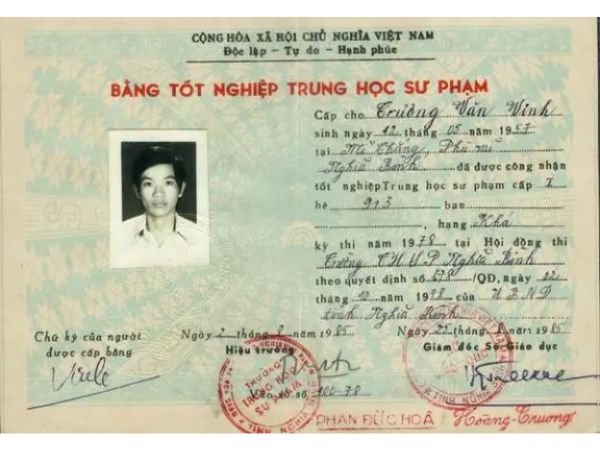 CỘNG HÒA XÃ HỘI CHỦ NGHĨA VIỆT NAM
Độc lập - Tự do - Hạnh phúc
BẰNG TỐT NGHIỆP TRUNG HỌC SƯ PHẠM
Cấp cho Trương Văn Vinh
sinh ngày 12 tháng 05 năm 1957
tại Mĩ Thắng, Phù mĩ
Nghĩa Bình đã được công nhận
tốt nghiệp Trung học sư phạm cấp I
hệ 9+3 ban
, hạng Khá
kỳ thi năm 1978 tại Hội đồng thi
Trường T.H.S.P Nghĩa Bình
theo quyết định số 678/QĐ, ngày 02
tháng 10 năm 1978 của U.B.N.D
tỉnh Nghĩa Bình
Chữ ký của người
được cấp bằng
Ngày 2 tháng 8 năm 1985
Hiệu trưởng
TRƯỜNG
TRUNG HỌC
SƯ PHẠM
Vào sổ số 100-78
PHAN ĐỨC HOÁ
Ngày 22 tháng 8 năm 1985
Giám đốc Sở Giáo dục
Hoàng-Trương